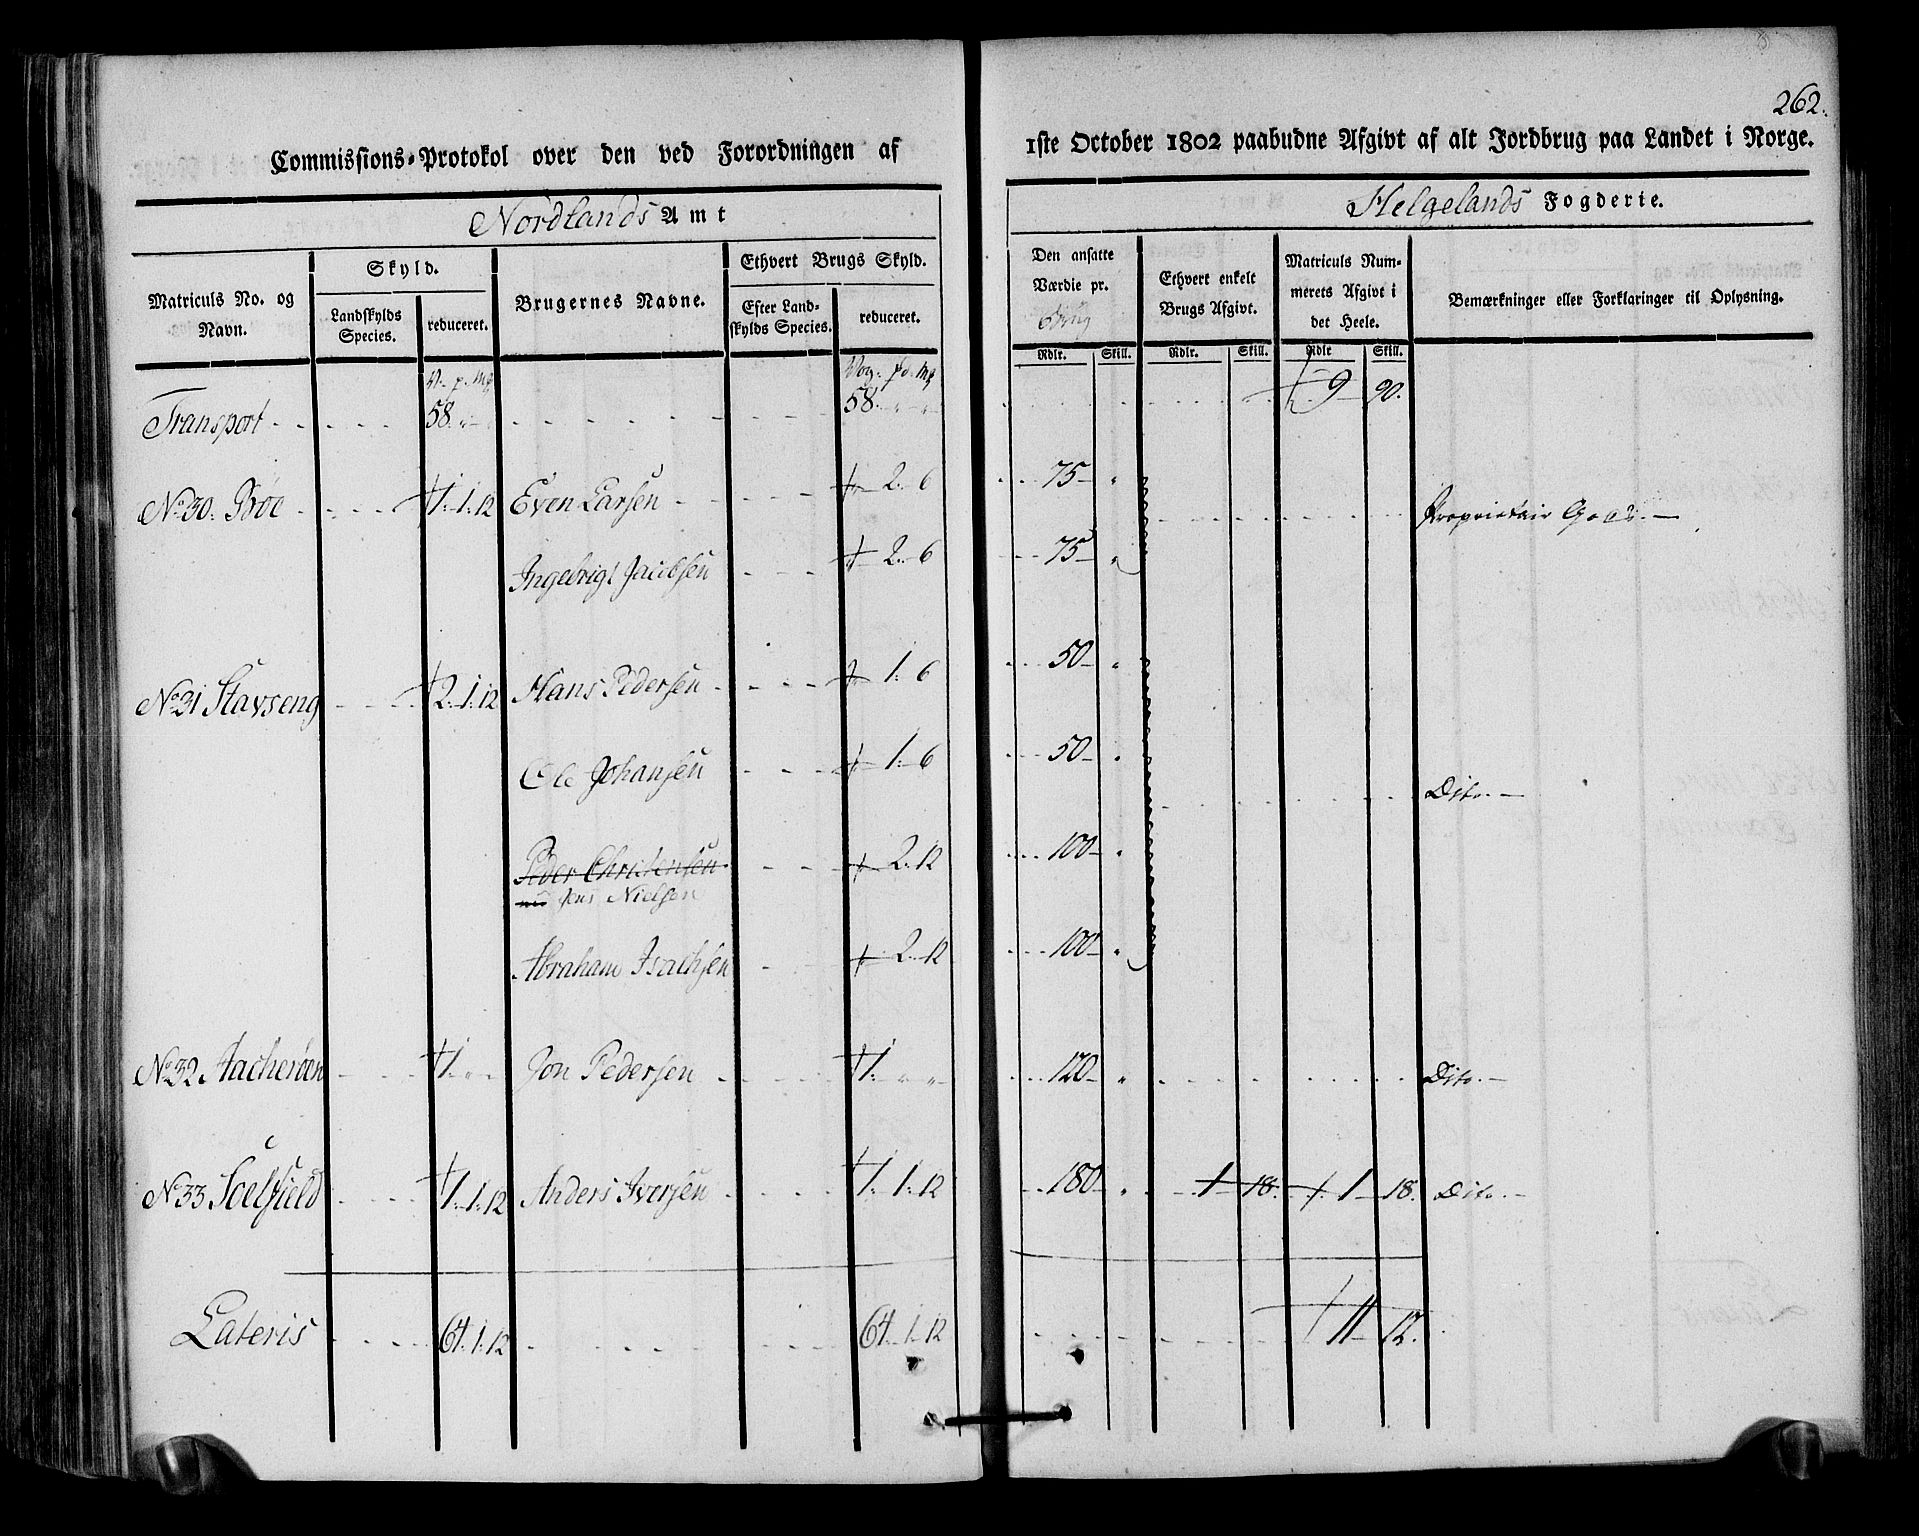 262.
Commissions-Protokol over den ved Forordningen af 1ste October 1802 paabudne Afgivt af alt Jordbrug paa Landet i Norge.
Nordlands Amt
Helgelands Fogderie.
Matriculs No. og Navn.
Skyld.
Landskylds Species.
reduceret.
Brugernes Navne.
Ethvert Brugs Skyld.
Efter Landskylds Species.
reduceret.
Den ansatte Værdie pr.
Ethvert enkelt Brugs Afgivt.
Matriculs Nummerets Afgivt i det Heele.
Bemærkninger eller Forklaringer til Oplysning.
Rdlr. Skill. Rdlr. Skill. Rdlr Skill.
V. p. Mk Vog. pd. Mk
Transport 58. " - 58. " - " 9 - 90.
No 30. Bøe 1. 1. 12 Even Larsen 2. 6 75 - " Proprietair Gods. -
Ingebrigt Jacobsen 2. 6 75 - "
No 31 Stavseng 2. 1. 12 Hans Pedersen 1. 6 50 - "
Ole Johansen 1. 6 50 - " Dito. -
Peder Christensen 2. 12 100 - "
nu Jens Nielsen
Abraham Isachsen 2. 12 100 - "
No 32 Aacherøen 1. " " Jon Pedersen 1. " " 120 - " Dito. -
No 33 Soelfield 1. 1. 12 Anders Iversen 1. 1. 12 180 - " 1 - 18. 1 - 18. Dito. -
Lateris 64. 1. 12 64. 1. 12 11 - 12.